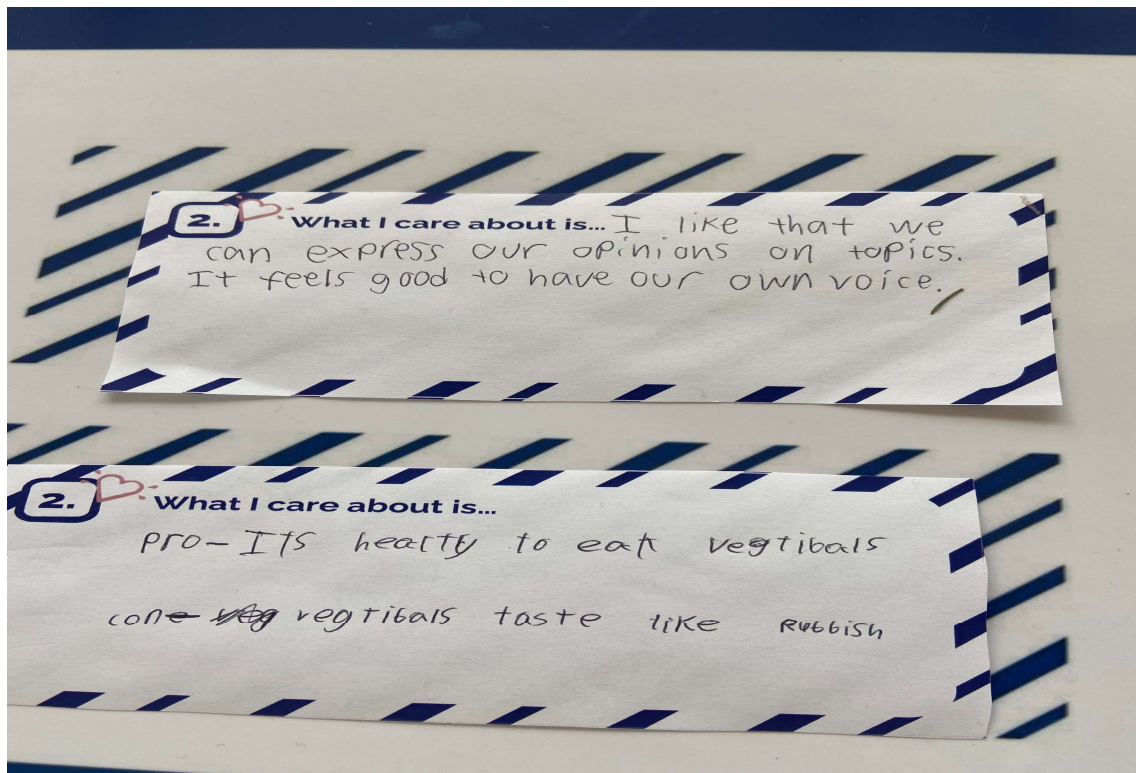 2. What I care about is... I like that we
can express our opinions on topics.
It feels good to have our own voice.
2. What I care about is...
pro- Its healty to eat vegtibals
con- vegtibals taste like Rubbish